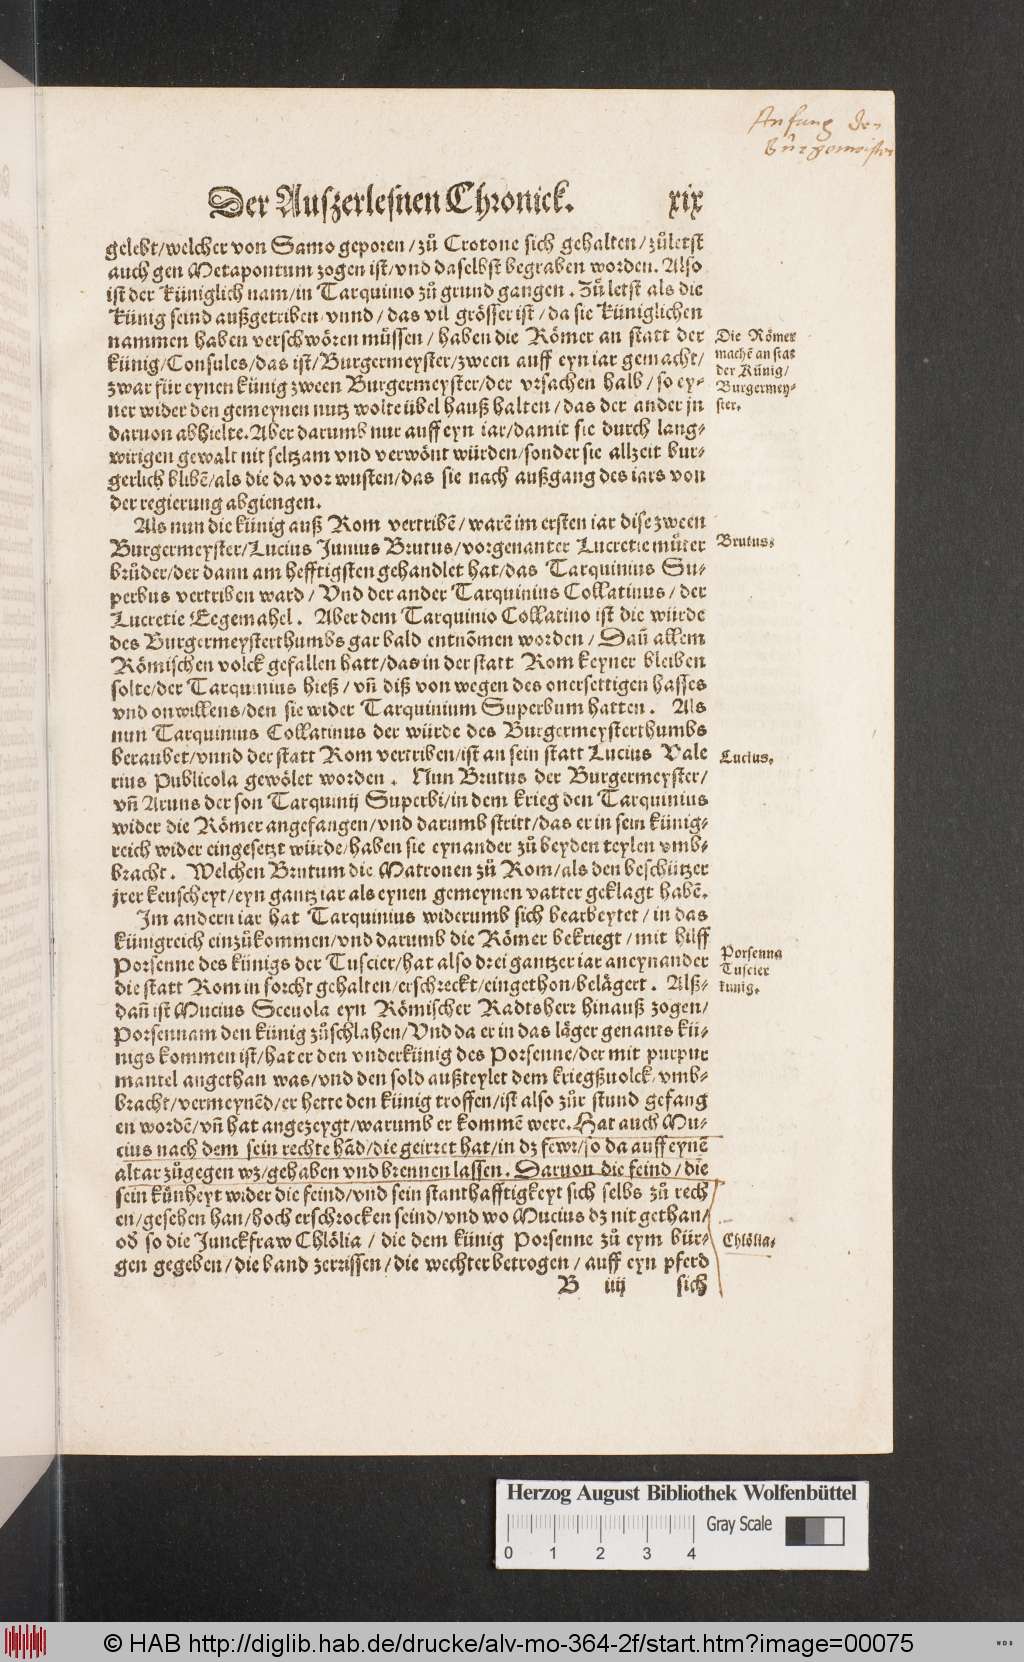 Anfang der
Bürgemeister
Der Auszerlesnen Chronick. xix
gelebt/welcher von Samo geporen/zů Crotone sich gehalten/zůletst
auch gen Metapontum zogen ist/vnd daselbst begraben worden. Also
ist der Küniglich nam/in Tarquinio zů grund gangen. Zů letst als die
Künig seind außgetriben/vnnd/das vil grösser ist/da sie Küniglichen
nammen haben verschwören müssen/haben die Römer an statt der
künig/Consules/das ist/Burgermeyster/zween auff eyn iar gemacht/
zwar für eynen künig zween Burgermeyster/der vrsachen halb/so ey-
ner wider den gemeynen nutz wolte übel hauß halten/das der ander jn
daruon abhielte. Aber darumb nur auff eyn iar/damit sie durch lang-
wirigen gewalt nit seltzam vnd verwönt würden/sonder sie allzeit bur-
gerlich blibē/als die da vor wusten/das sie nach außgang des iars von
der regierung abgiengen.
Die Römer
machē an stat
der Künig/
Burgermey-
ster.
Als nun die künig auß Rom vertribē/warē im ersten iar dise zween
Burgermeyster/Lucius Junius Brutus/vorgenanter Lucretie můter
brůder/der dann am hefftigsten gehandlet hat/das Tarquinius Su-
perbus vertriben ward/Vnd der ander Tarquinius Collatinus/der
Lucretie Eegemahel. Aber dem Tarquinio Collatino ist die würde
des Burgermeysterthumbs gar bald entnōmen worden/Dañ allem
Römischen volck gefallen hatt/das in der statt Rom keyner bleiben
solte/der Tarquinius hieß/vñ diß von wegen des onersettigen hasses
vnd onwillens/den sie wider Tarquinium Superbum hatten. Als
nun Tarquinius Collatinus der würde des Burgermeysterthumbs
beraubet/vnnd der statt Rom vertriben/ist an sein statt Lucius Vale
rius Publicola gewölet worden. Nun Brutus der Burgermeyster/
vñ Aruns der son Tarquinij Superbi/in dem krieg den Tarquinius
wider die Römer angefangen/vnd darumb stritt/das er in sein künig-
reich wider eingesetzt würde/haben sie eynander zů beyden teylen vmb-
bracht. Welchen Brutum die Matronen zů Rom/als den beschützer
jrer keuscheyt/eyn gantz iar als eynen gemeynen vatter geklagt habē.
Brutus.
Lucius.
Im andern iar hat Tarquinius widerumb sich bearbeytet/in das
künigreich einzůkommen/vnd darumb die Römer bekriegt/mit hilff
Porsenne des künigs der Tuscier/hat also drei gantzer iar aneynander
die statt Rom in forcht gehalten/erschreckt/eingethon/belägert. Alß-
dañ ist Mucius Sceuola eyn Römischer Radtsherr hinauß zogen/
Porsennam den künig zůschlahen/Vnd da er in das läger genants kü-
nigs kommen ist/hat er den vnderkünig des Porsenne/der mit purpur
mantel angethan was/vnd den sold außteylet dem kriegßuolck/vmb-
bracht/vermeynēd/er hette den künig troffen/ist also zůr stund gefang
en wordē/vñ hat angezeygt/warumb er kommē were. Hat auch Mu-
cius nach dem sein rechte hād/die geirret hat/in dz fewr/so da auff eynē
altar zůgegen wz/gehaben vnd brennen lassen. Daruon die feind/die
sein künheyt wider die feind/vnd sein stanthafftigkeyt sich selbs zů rech
en/gesehen han/hoch erschrocken seind/vnd wo Mucius dz nit gethan/
od so die Junckfraw Chlölia/die dem künig Porsenne zů eym bür-
gen gegeben/die band zerrissen/die wechter betrogen/auff eyn pferd
B iiij sich
Porsenna
Tuscier
künig.
Chlölia.
Herzog August Bibliothek Wolfenbüttel
Gray Scale
0 1 2 3 4
© HAB http://diglib.hab.de/drucke/alv-mo-364-2f/start.htm?image=00075